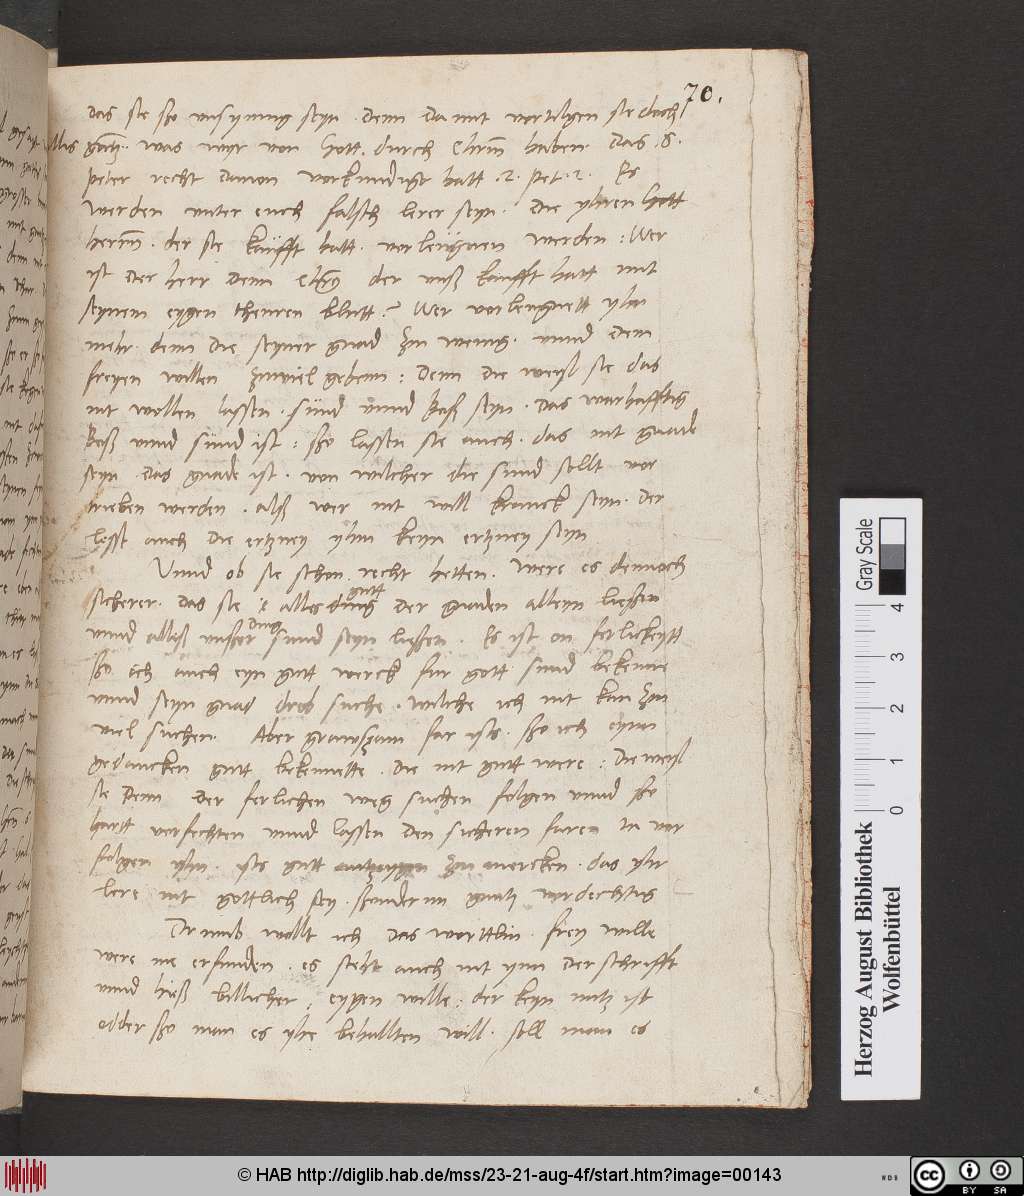 70.
das sie szo unsynnig seyn. denn damit vortilgen sie doch
alles gantz. was wyr von Gott. durch Christum haben. Das. S.
peter recht dauon vorkundigt hatt .2. pet. 2. Es
werden unter euch falsch lerer seyn. die yhren Gott
herrn. der sie kaufft hatt. vorleugnen werden: Wer
ist der herr denn Christus der unß kaufft hatt mit
seynem eygen theuren blutt? Wer vorleugnett yhn
mehr. denn die seyner gnad zu wenig. unnd dem
freyen willen zuuiel geben: Denn die weyl sie das
nit wollen lassen. sünd unnd boß seyn. das warhafftig
boß unnd sünd ist: szo lassen sie auch. das nit gnade
seyn das gnade ist. von wilcher die sund sollt vor
trieben werden. alß wer nit will kranck seyn. der
lesst auch die ertzney yhm keyn ertzney seyn
Unnd ob sie schon recht hetten. were es dennoch
gutt
sicherer. das sie alles ding der gnaden alleyn liessen
ding
unnd alleß unßer sunnd seyn liessen. Es ist on ferlickeytt
szo ich auch eyn gutt werck fur gott sund bekenne
unnd seyn gnad drob suche. wilche ich nit kan zu
viel suchen. Aber grawsam far ists. szo ich eynn
gedancken gutt bekennette. die nit gutt were: Die weyl
sie denn der ferlichen weg suchen folgen unnd szo
hartt verfechten unnd lassen den sicheren faren tzu vor
folgen yhn. ists gutt zu mercken. das yhr
lere nit gottlich sey. szondernn gantz vordechtig
Drumb wollt ich das worttlin. frey wille
were nie erfunden. es steht auch nit ynn der schrifft
unnd hieß billicher: eygen wille: der keyn nutz ist
odder szo man es yhe behallten will. soll man es
Herzog August Bibliothek
Wolfenbüttel
Gray Scale
0 1 2 3 4
© HAB http://diglib.hab.de/mss/23-21-aug-4f/start.htm?image=00143
WDB
cc BY SA